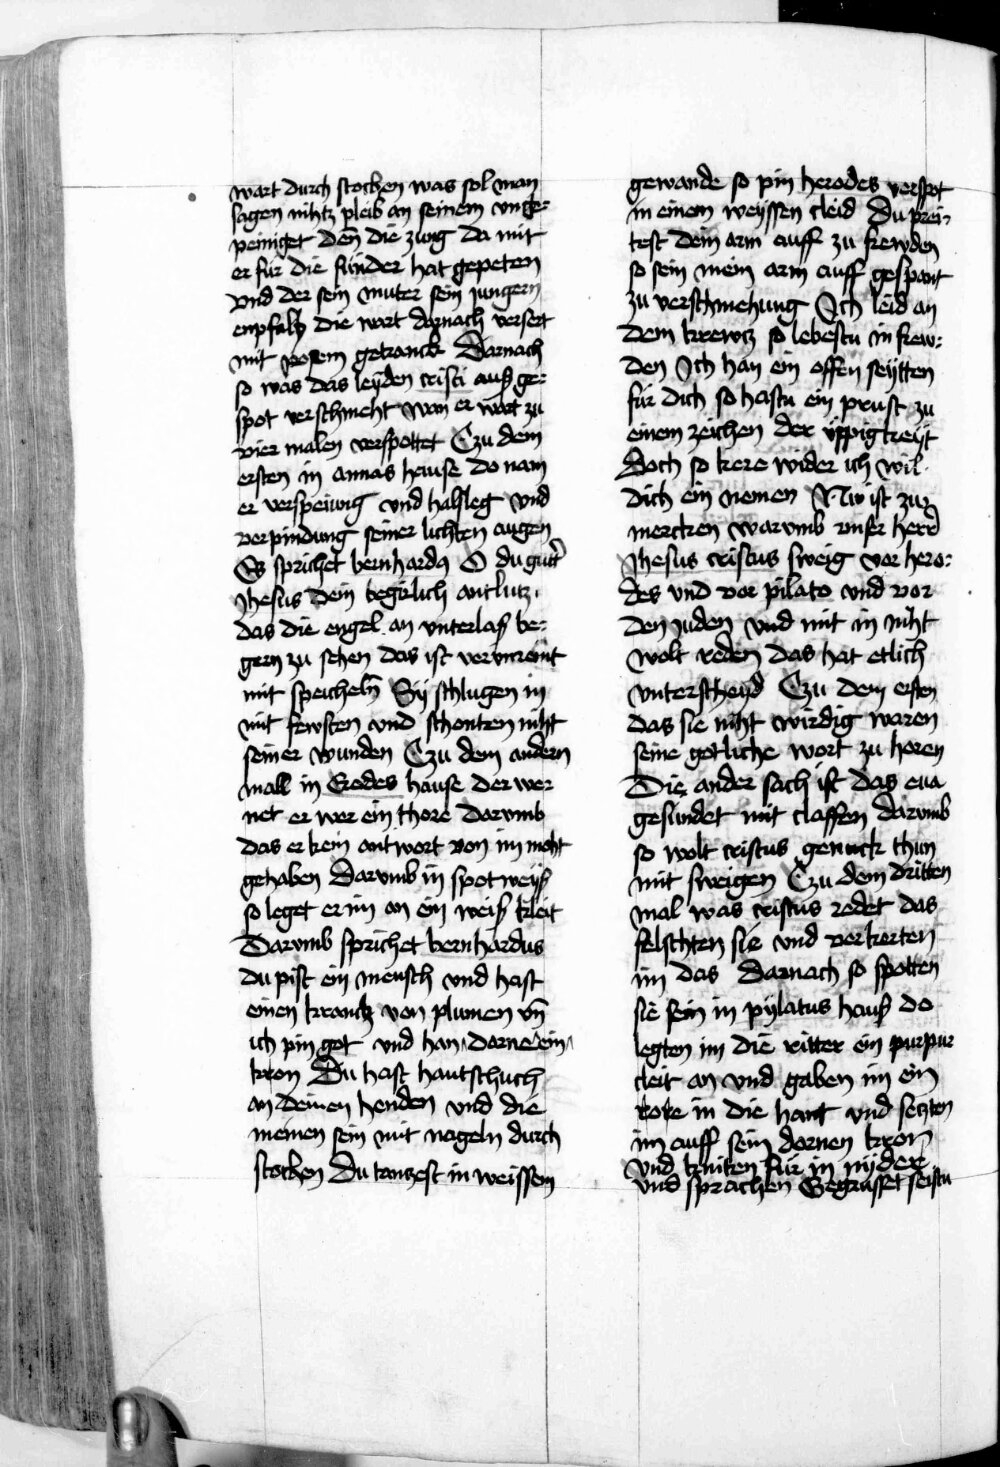 wart durch stochen was sol man
sagen nihtz pleib an seinem unge-
peiniget den die zung da mit
er für die sünder hat gepeten
und der sein muter sein jungern
enpfalh die wart darnach versert
mit posem getranck Darnach
so was das leyden cristi auß ge-
spot verschmeht wan er wart zu
vier malen verspottet Czu dem
ersten in annas hause do nam
er verspeiung und halsleg und
verpindung seiner lichten augen
Es sprichet bernhardus O du guter
Jhesus dein begirlich antlutz
das die engel an unterlaß be-
gern zu sehen das ist verunreint
mit speicheln Sy schlugen in
mit fewsten und schonten niht
seiner wunden Czu dem andern
mall in Erodes hause der wer
net er wer ein thore Darumb
das er kein antwort von im moht
gehaben Darumb in spot weyß
so leget er im an ein weiß kleit
Darumb sprichet bernhardus
du pist ein mensch und hast
einen krantz von plumen un̄
ich pin got und han dorne ein
kron Du hast hantschuch
an deinen henden und die
meinen sein mit nageln durch
stochen Du tantzest in weissem
gewande so pin herodes verspot
in einem weyssen cleid Du prei-
test dein arm auff zu frewden
so sein mein arm auff gespant
zu verschmehung Ich leid an
dem krewtz so lebestu in frew-
den Ich han ein offen seytten
für dich so hastu ein prust zu
einem zeichen der üppigkeyt
Doch so kere wider ich wil
dich ein nemen Nw ist zu
mercken warumb unser herr
Jhesus cristus sweig vor hero-
des und vor pilato und vor
den juden und mit in niht
wolt reden das hat etlich
unterscheyd Czu dem ersten
das sie niht wirdig waren
seine gotliche wort zu horen
Die ander sach ist das eua
gesündet mit claffen darumb
so wolt cristus genuck thun
mit sweigen Czu dem dritten
mal was cristus redet das
felschten sie und verkerten
im das Darnach so spotten
sie sein in pylatus hauß do
legten im die ritter ein purpur
cleit an und gaben im ein
rore in die hant und setzten
im auff sein dornen kron
und kniten für in nyder
und sprachen Gegrüsset seistu